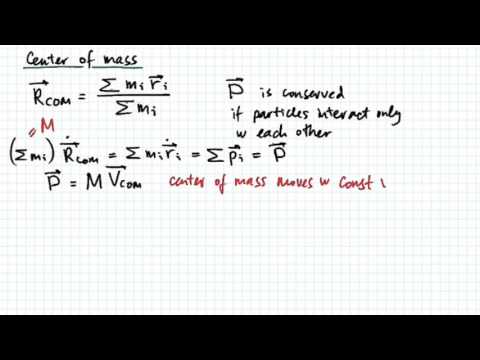 Center of mass
R⃗_COM = Σ m_i r⃗_i / Σ m_i
P⃗ is conserved
if particles interact only
w each other
= M
(Σ m_i) Ṙ⃗_COM = Σ m_i ṙ⃗_i = Σ p⃗_i = P⃗
P⃗ = M V⃗_COM center of mass moves w const